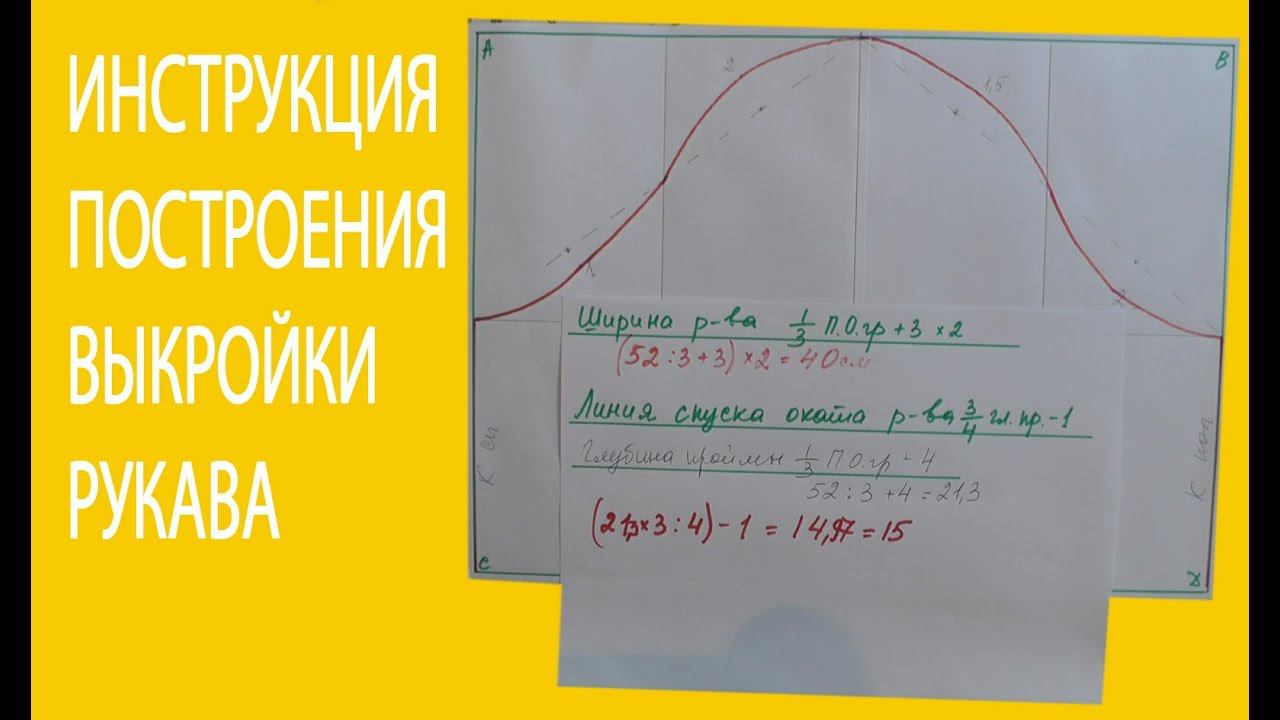 ИНСТРУКЦИЯ
ПОСТРОЕНИЯ
ВЫКРОЙКИ
РУКАВА
A
B
2
1,5
1
2
Ширина р-ва 1/3 П.О.гр + 3 × 2
(52 : 3 + 3) × 2 = 40 см
Линия спуска оката р-ва 3/4 гл. пр. - 1
Глубина проймы 1/3 П.О.гр + 4
52 : 3 + 4 = 21,3
(21,3 × 3 : 4) - 1 = 14,97 = 15
К сп
К пол
C
D